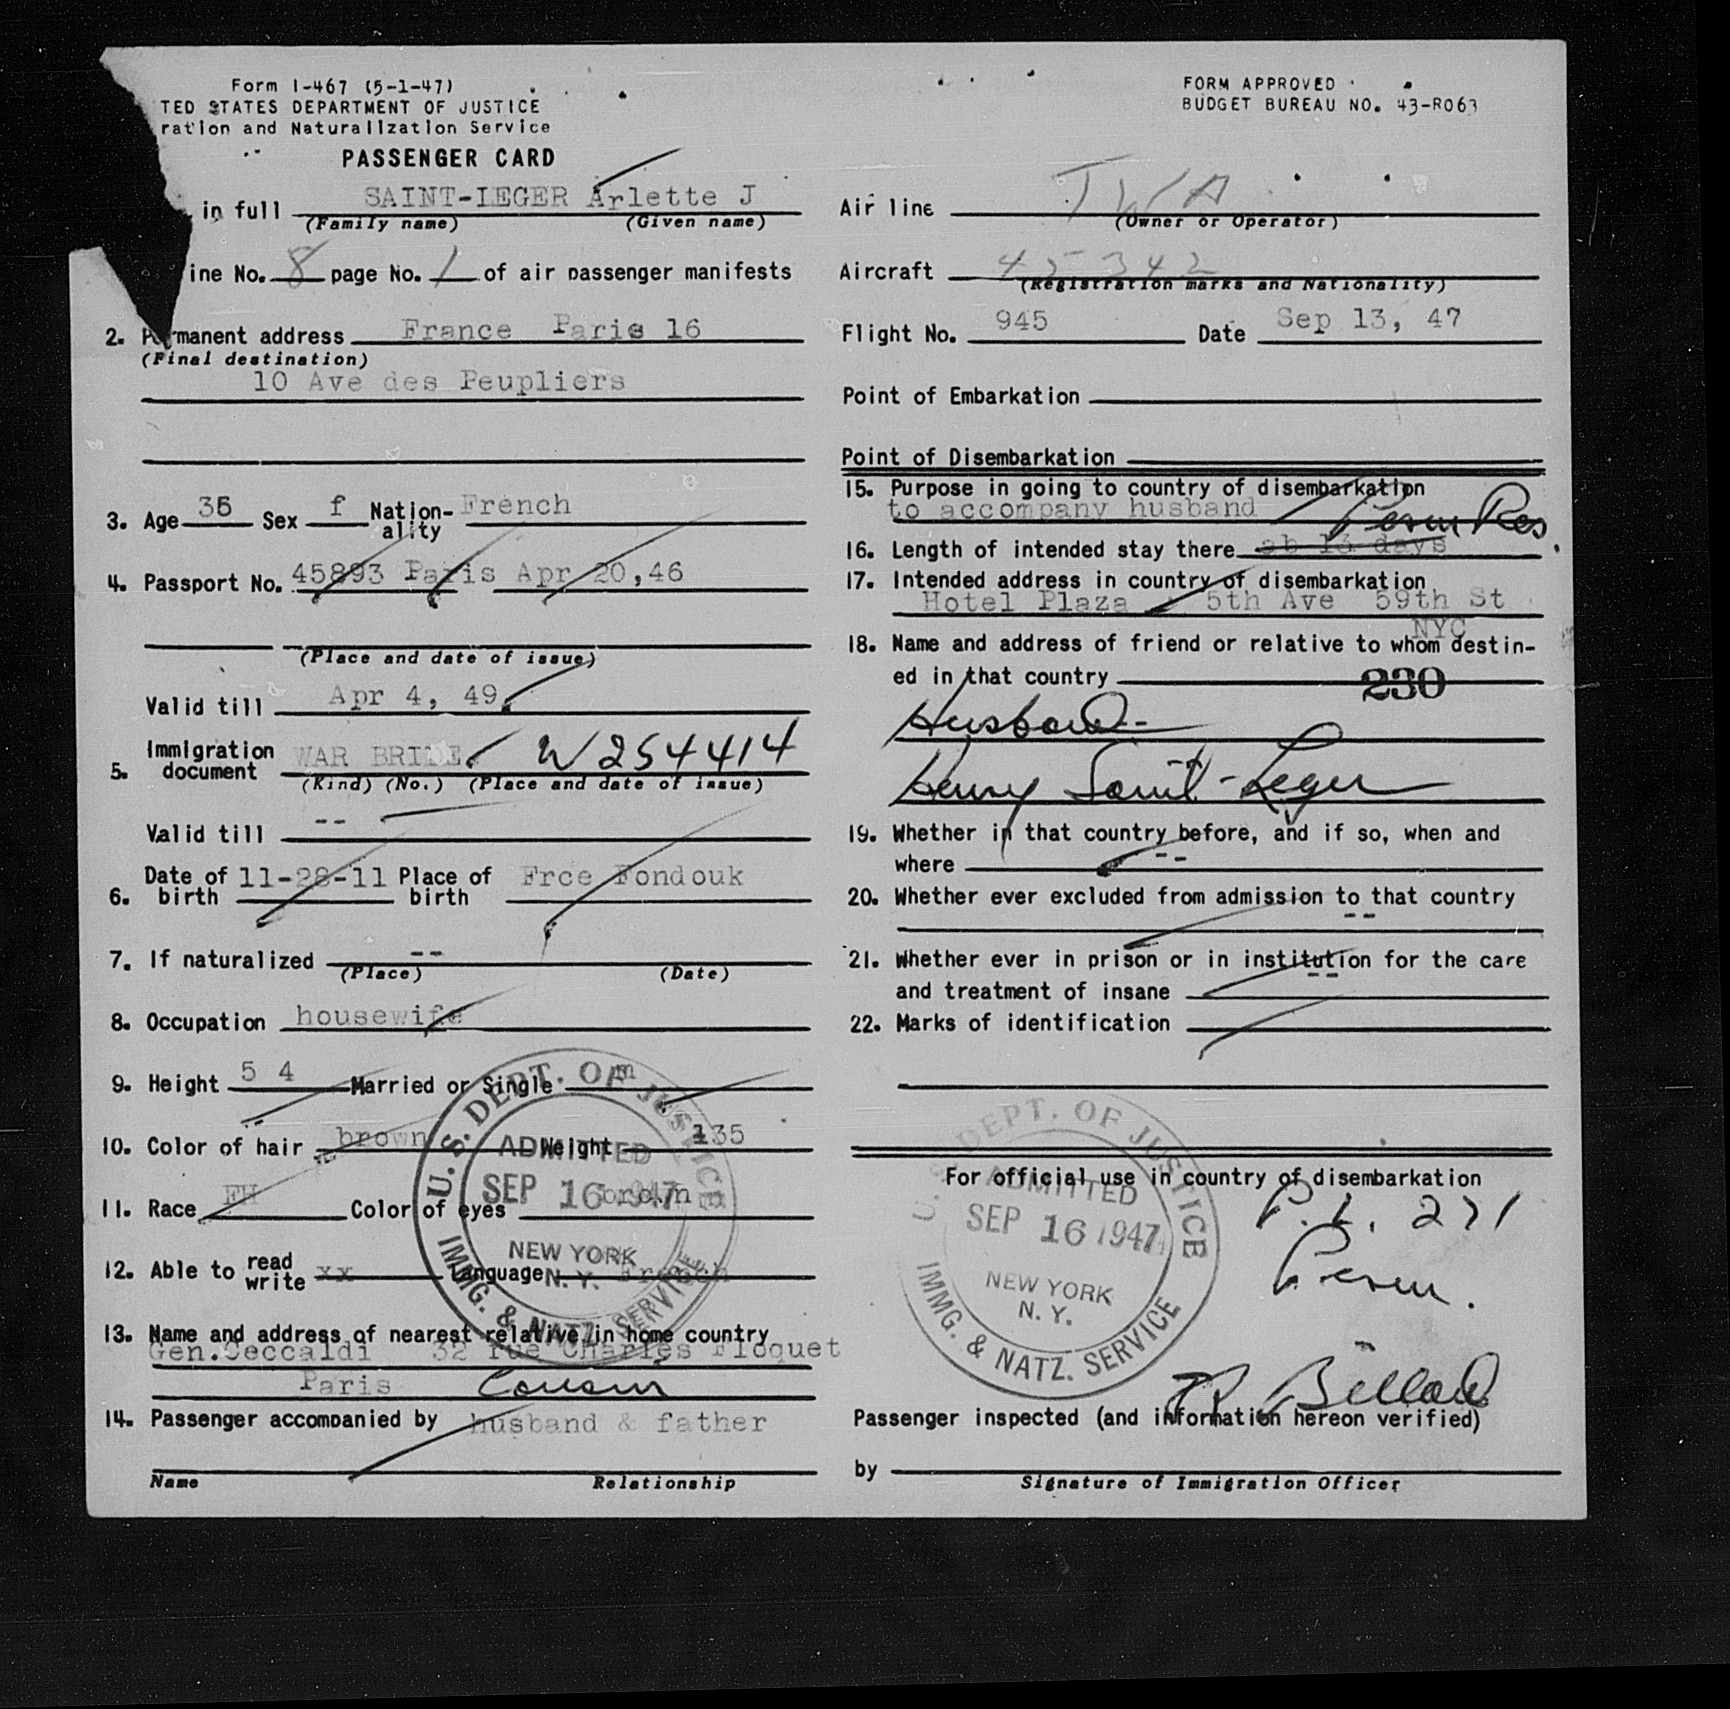 Form I-467 (5-1-47)
TED STATES DEPARTMENT OF JUSTICE
ration and Naturalization Service
PASSENGER CARD
in full SAINT-LEGER Arlette J
(Family name) (Given name)
ine No. 8 page No. 1 of air passenger manifests
2. Permanent address France Paris 16
(Final destination)
10 Ave des Peupliers
3. Age 36 Sex f Nation-ality French
4. Passport No. 45893 Paris Apr 20,46
(Place and date of issue)
Valid till Apr 4, 49
5. Immigration document WAR BRIDE W254414
(Kind) (No.) (Place and date of issue)
Valid till --
6. Date of birth 11-28-11 Place of birth Frce Fondouk
7. If naturalized --
(Place) (Date)
8. Occupation housewife
9. Height 5 4 Married or Single m
10. Color of hair brown Weight 135
11. Race FH Color of eyes brown
12. Able to read write xx Language French
13. Name and address of nearest relative in home country
Gen.Ceccaldi 32 rue Charles Floquet
Paris Cousin
14. Passenger accompanied by husband & father
Name Relationship
U.S. DEPT. OF JUSTICE
ADMITTED
SEP 16 1947
NEW YORK
N. Y.
IMMG. & NATZ. SERVICE
FORM APPROVED
BUDGET BUREAU NO. 43-R063
Air line TWA
(Owner or Operator)
Aircraft 45342
(Registration marks and Nationality)
Flight No. 945 Date Sep 13, 47
Point of Embarkation
Point of Disembarkation
15. Purpose in going to country of disembarkation
to accompany husband
Perm Res.
16. Length of intended stay there ab 13 days
17. Intended address in country of disembarkation
Hotel Plaza 5th Ave 59th St
NYC
18. Name and address of friend or relative to whom destin-
ed in that country 230
Husband-
Henry Saint-Leger
19. Whether in that country before, and if so, when and
where --
20. Whether ever excluded from admission to that country
--
21. Whether ever in prison or in institution for the care
--
and treatment of insane
22. Marks of identification
For official use in country of disembarkation
P.L. 271
Perm.
U.S. DEPT. OF JUSTICE
ADMITTED
SEP 16 1947
NEW YORK
N. Y.
IMMG. & NATZ. SERVICE
Passenger inspected (and information hereon verified)
by
Signature of Immigration Officer